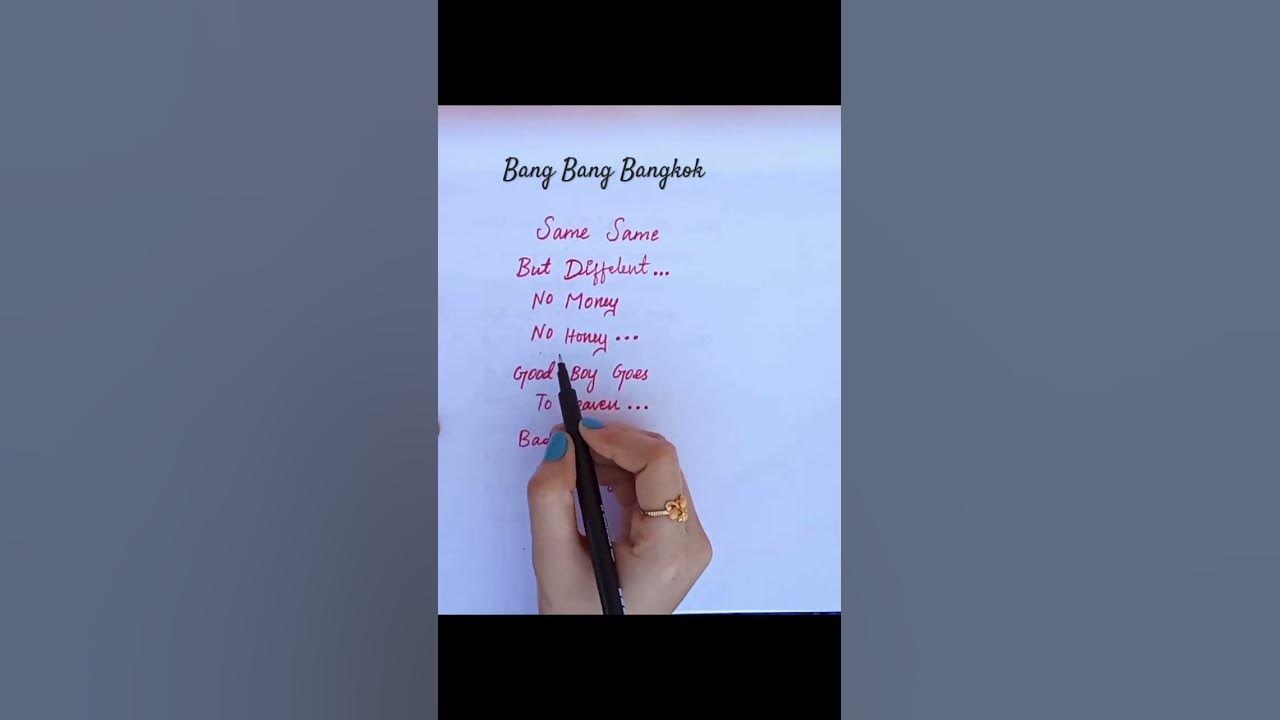 Bang Bang Bangkok
Same Same
But Diffelent...
No Money
No Honey...
Good Boy Goes
To
Bad